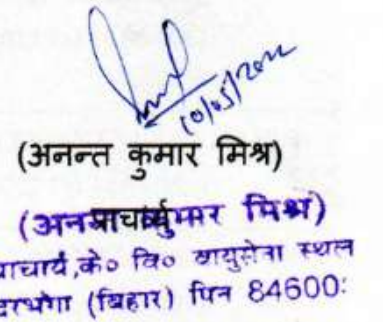 10/05/2022
(अनन्त कुमार मिश्र)
प्राचार्य
(अनन्त कुमार मिश्र)
प्राचार्य,के० वि० वायुसेना स्थल
दरभंगा (बिहार) पिन 84600